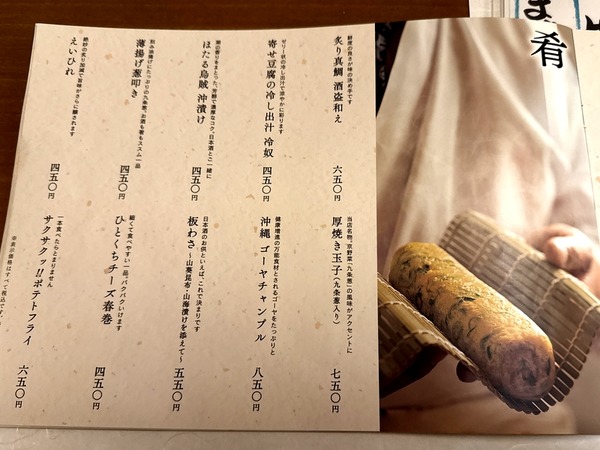 肴
鮮度の良さが味の決め手です
炙り真鯛 酒盗和え
六五〇円
ゼリー状の冷し出汁で涼やかに彩ります
寄せ豆腐の冷し出汁 冷奴
四五〇円
柚の香りをまとった、芳醇で濃厚なコク、日本酒とご一緒に
ほたる烏賊 沖漬け
四五〇円
刻み油揚げにたっぷりの九条葱、お酒も箸もススム一品
薄揚げ葱叩き
四五〇円
絶妙の炙り加減で旨味がさらに醸されます
えいひれ
四五〇円
当店名物、京野菜「九条葱」の風味がアクセントに
厚焼き玉子(九条葱入り)
七五〇円
健康増進の万能食材とされるゴーヤをたっぷりと
沖縄 ゴーヤチャンプル
八五〇円
日本酒のお供といえば、これで決まりです
板わさ 〜山葵昆布・山海漬けを添えて〜
五五〇円
細くて食べやすい一品、パクパクいけます
ひとくちチーズ春巻
四五〇円
一本食べたらとまりません
サクサクッ!!ポテトフライ
六五〇円
※表示価格はすべて税込です。